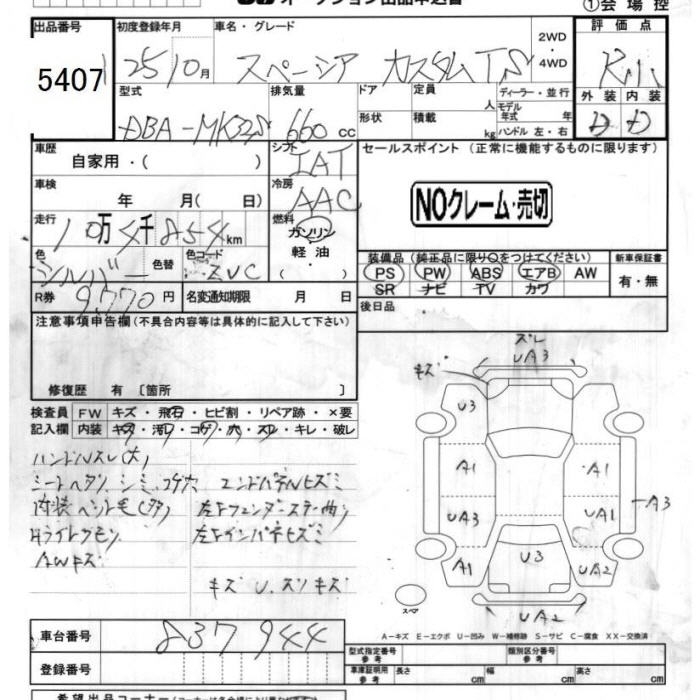 オークション出品申込書 ①会場控
出品番号 初度登録年月 車名・グレード 2WD・4WD 評価点
5407 25 10月 スペーシア カスタムTS R
外装 内装
D D
型式 排気量 ドア 定員 人 ディーラー・並行
DBA-MK32S 660cc 形状 積載 kg モデル年式 年
ハンドル 左・右
車歴 自家用・( ) シフト IAT セールスポイント (正常に機能するものに限ります)
車検 年 月( 日) 冷房 AAC NOクレーム・売切
走行 10万4千854km 燃料 ガソリン 軽油・( )
色 シルバー 色替 色コード ZVC
装備品 (純正品に限り○をつけてください) 新車保証書
PS PW ABS エアB AW 有・無
SR ナビ TV カワ
R券 9,770円 名変通知期限 月 日 後日品
注意事項申告欄(不具合内容等は具体的に記入して下さい)
修復歴 有 〔箇所 〕
検査員記入欄 FW キズ・飛石・ヒビ割・リペア跡・×要
内装 キズ・汚レ・コゲ・穴・スレ・キレ・破レ
ハンドルスレ(大)
シートヘタリ、シミ、コゲ穴 エンドパネルキズミ
内装ペット毛(多) 左Fフェンダーステー曲り
Hライトクモリ 左Fインパネキズミ
AWキズ
キズ U、ズリキズ
ズレ
UA3
キズ
U3
A1 A1
UA3 UA1 A3
A1 U3 UA2
スペア UA2
A-キズ E-エクボ U-凹み W-補修跡 S-サビ C-腐食 XX-交換済
車台番号 837944
登録番号
型式指定番号 参考 類別区分番号 参考
車庫証明用 参考 長さ cm 幅 cm 高さ cm
希望出品コーナー